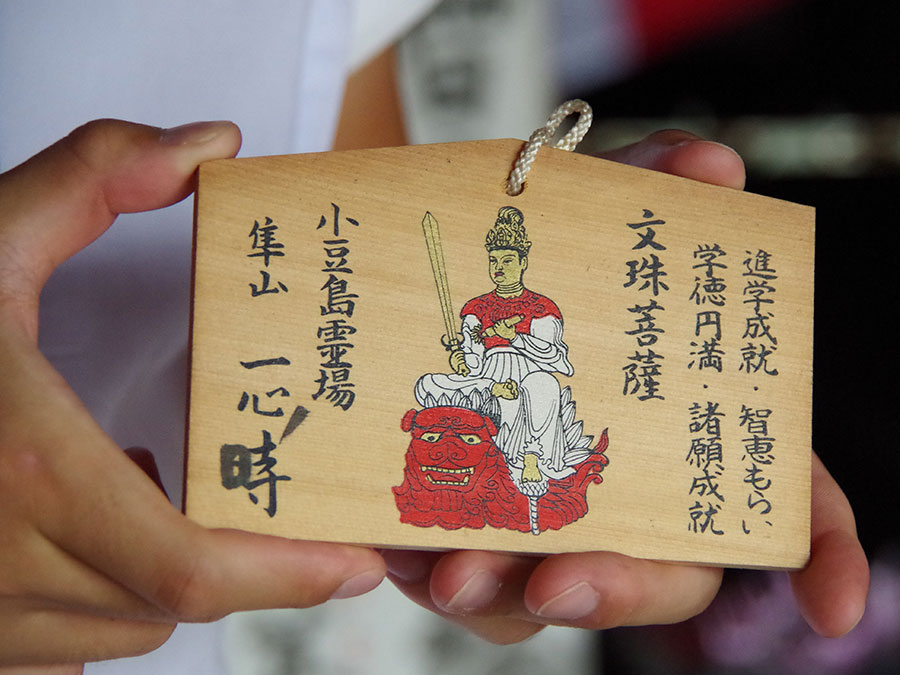 進学成就・智恵もらい
学徳円満・諸願成就
文珠菩薩
小豆島霊場
隼山 一心時